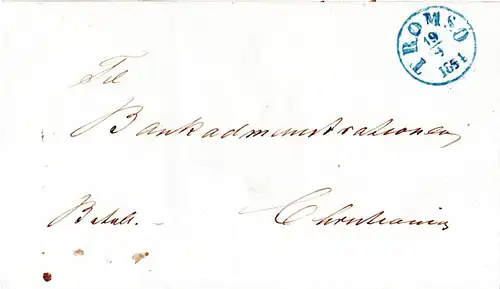 TROMSØ
19/9
1854
Til
Bankadministrationen
Betalt.
Christiania